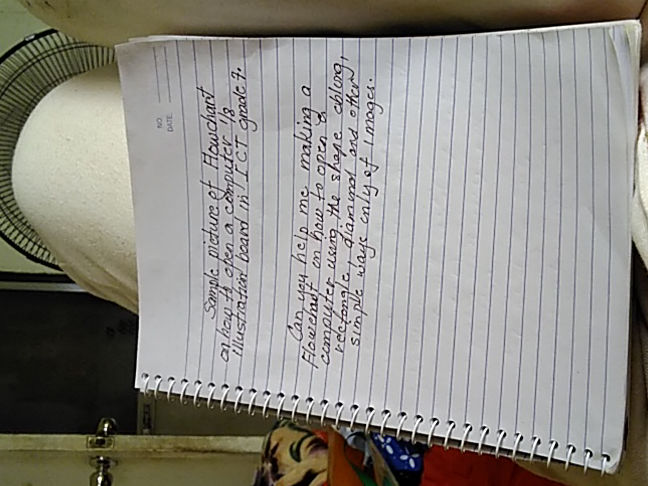 NO.
DATE
Sample picture of Flowchart
on how to open a computer 1/8
illustration board in I C T grade 7.
Can you help me making a
Flowchart on how to open a
computer using the shape oblong,
rectangle, diammond and other
simple ways only of images.